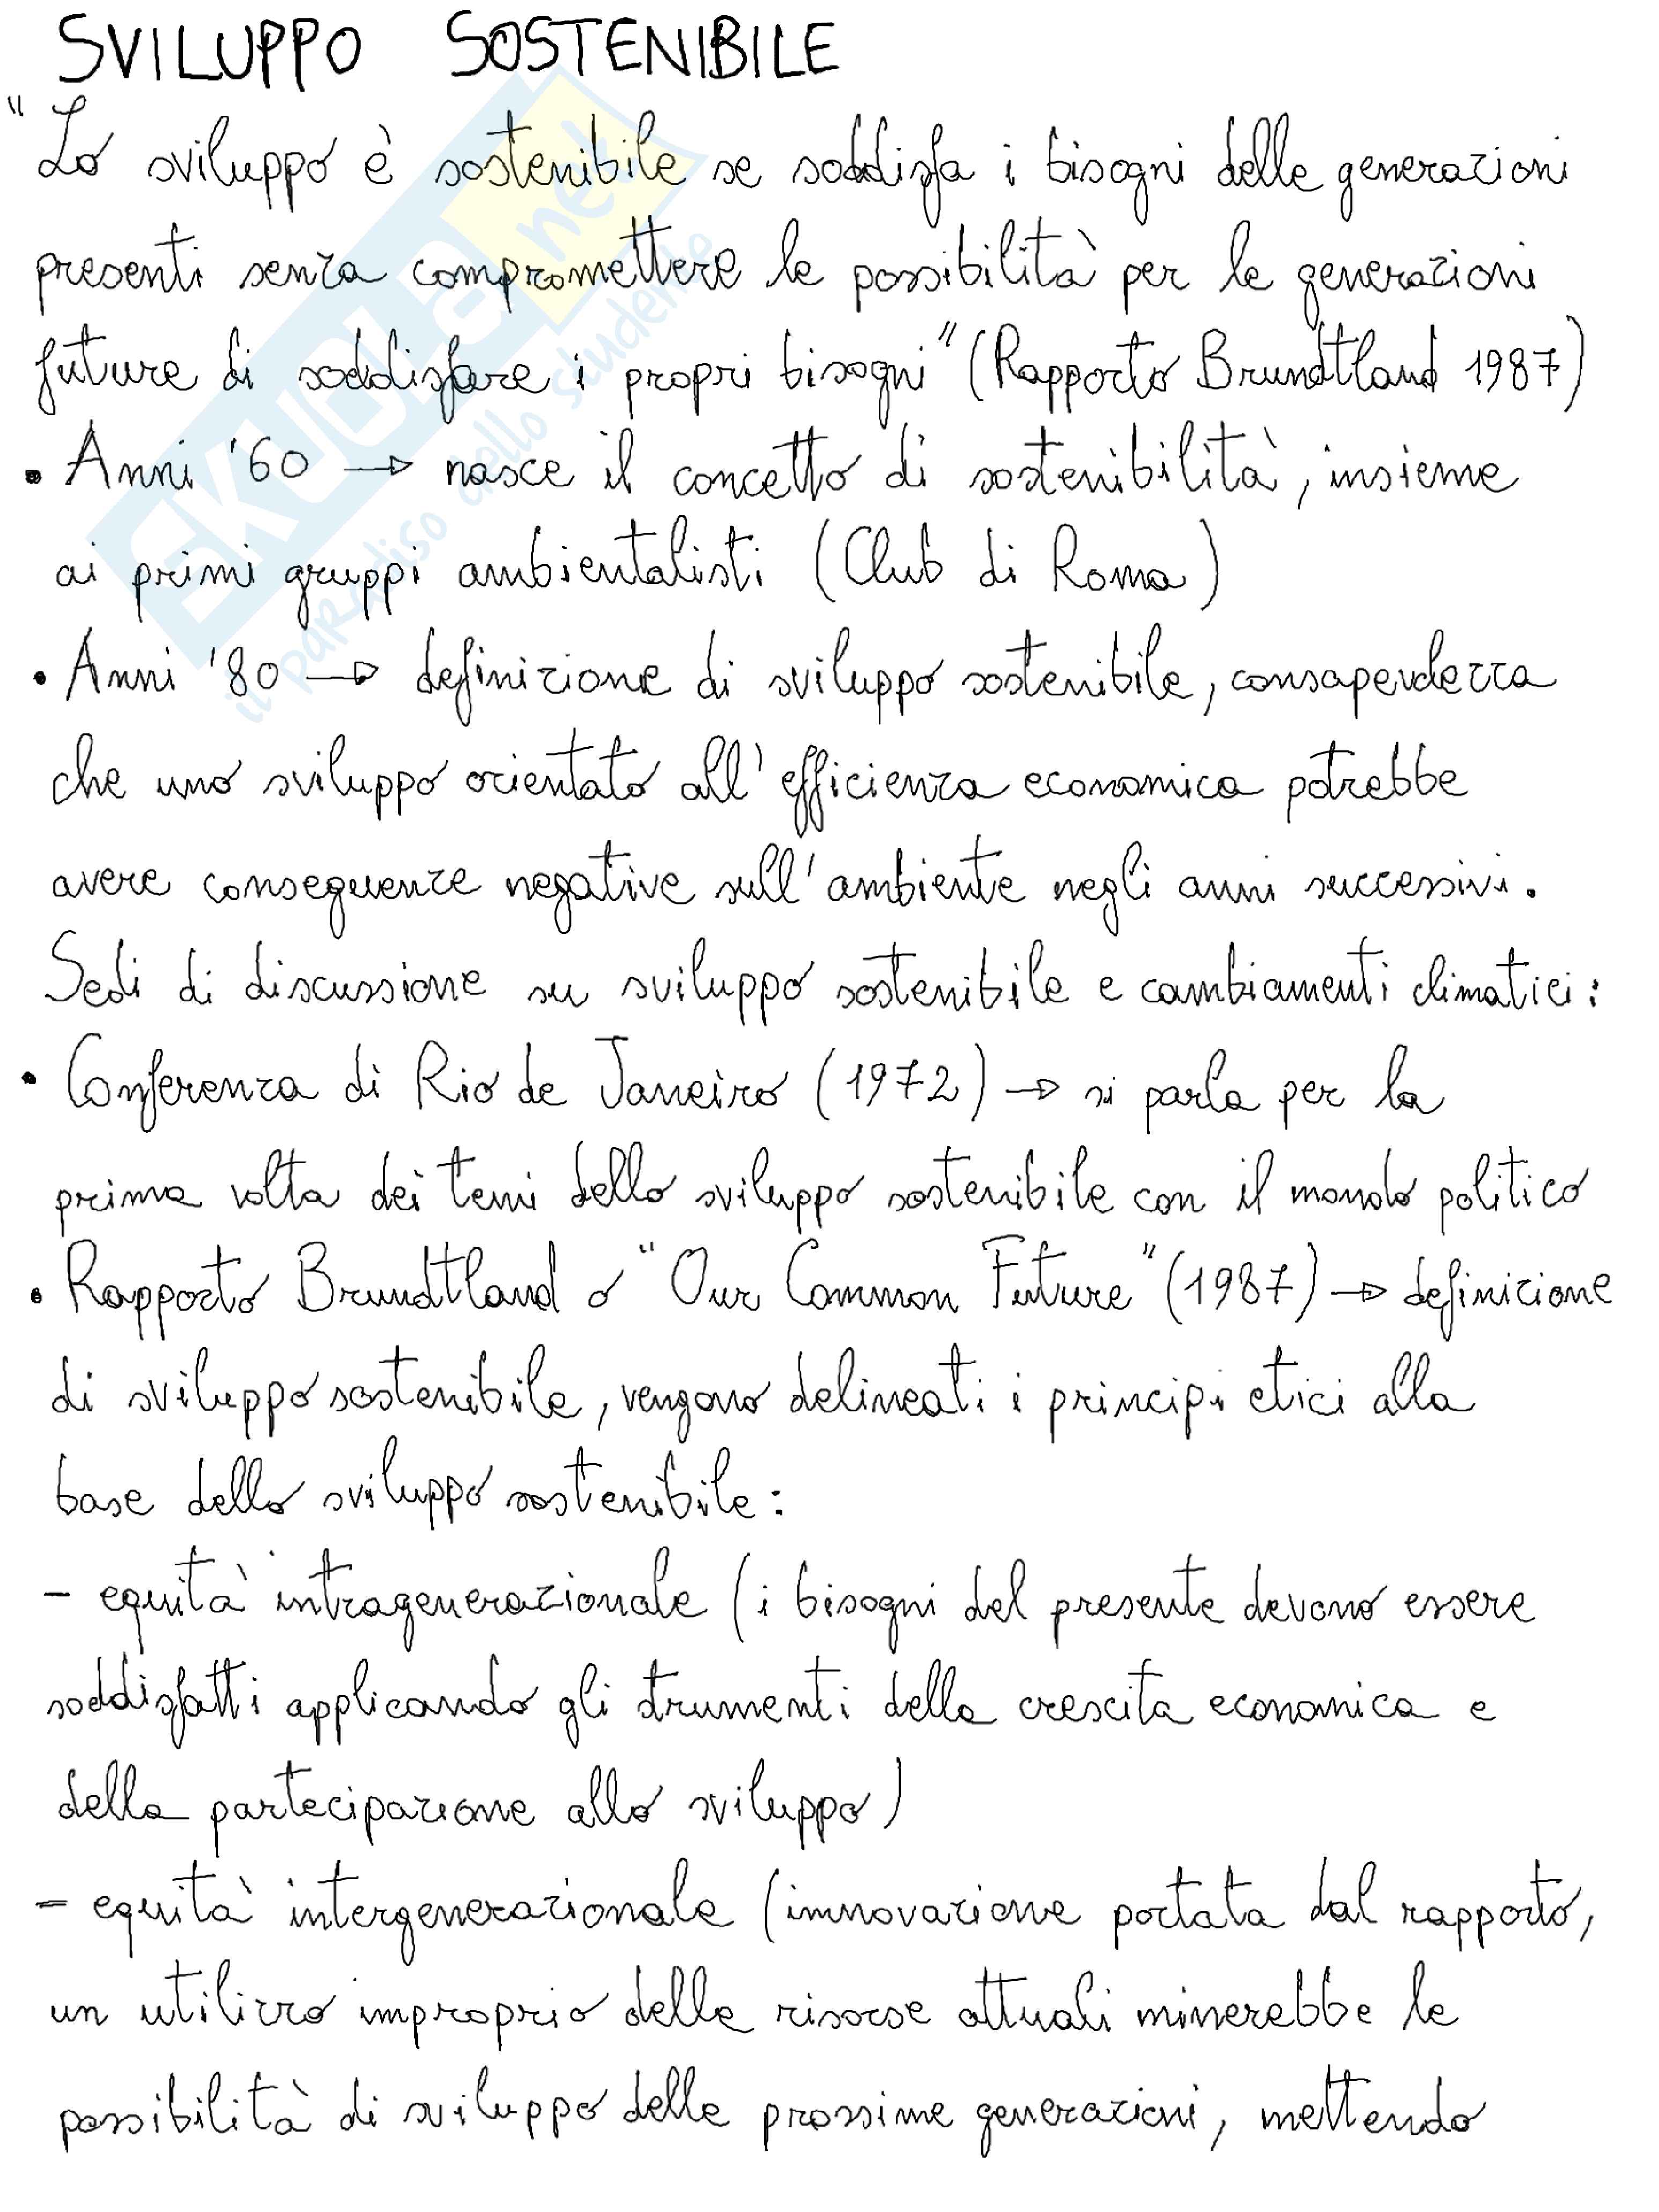 SVILUPPO SOSTENIBILE
"Lo sviluppo è sostenibile se soddisfa i bisogni delle generazioni
presenti senza compromettere le possibilità per le generazioni
future di soddisfare i propri bisogni" (Rapporto Brundtland 1987)
• Anni '60 → nasce il concetto di sostenibilità, insieme
ai primi gruppi ambientalisti (Club di Roma)
• Anni '80 → definizione di sviluppo sostenibile, consapevolezza
che uno sviluppo orientato all'efficienza economica potrebbe
avere conseguenze negative sull'ambiente negli anni successivi.
Sedi di discussione su sviluppo sostenibile e cambiamenti climatici:
• Conferenza di Rio de Janeiro (1972) → si parla per la
prima volta dei temi dello sviluppo sostenibile con il mondo politico
• Rapporto Brundtland o "Our Common Future" (1987) → definizione
di sviluppo sostenibile, vengono delineati i principi etici alla
base dello sviluppo sostenibile:
- equità intragenerazionale (i bisogni del presente devono essere
soddisfatti applicando gli strumenti della crescita economica e
della partecipazione allo sviluppo)
- equità intergenerazionale (innovazione portata dal rapporto,
un utilizzo improprio delle risorse attuali minerebbe le
possibilità di sviluppo delle prossime generazioni, mettendo
SKUOLA.net
il paradiso dello studente